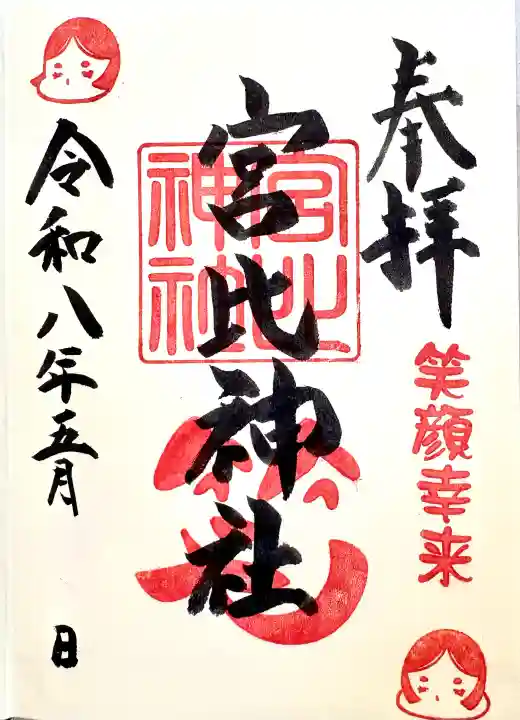 奉拝
笑顔幸来
宮比神社
宮比神社
令和八年五月 日